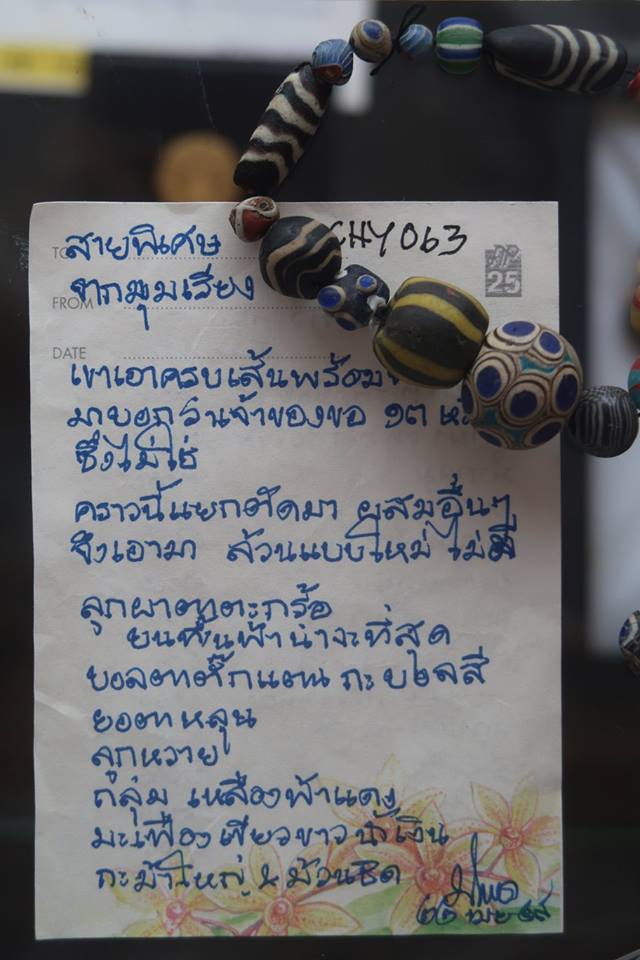 CHY063
TO สายพิเศษ
25
FROM จากมุมเรียง
DATE
เขาเอาครบเส้นพร้อม
มาบอกวันเจ้าของขอ ๑๓
ซึ่งไม่ใช่
คราวนี้แยกตัดมา ผสมอื่นๆ
จึงเอามา ล้วนแบบใหม่ ไม่มี
ลูกผาตาตะกร้อ
บนพื้นฟ้าน่าจะที่สุด
บอลตาตั๊กแตน กะบอลสี
ยอตาหลุน
ลูกหวาย
กลุ่ม เหลืองฟ้าแดง
มะเฟืองเขียวขาวน้ำเงิน
กะม้าใหญ่ & ม้วนชิด
๒๒ เมย ๔๙